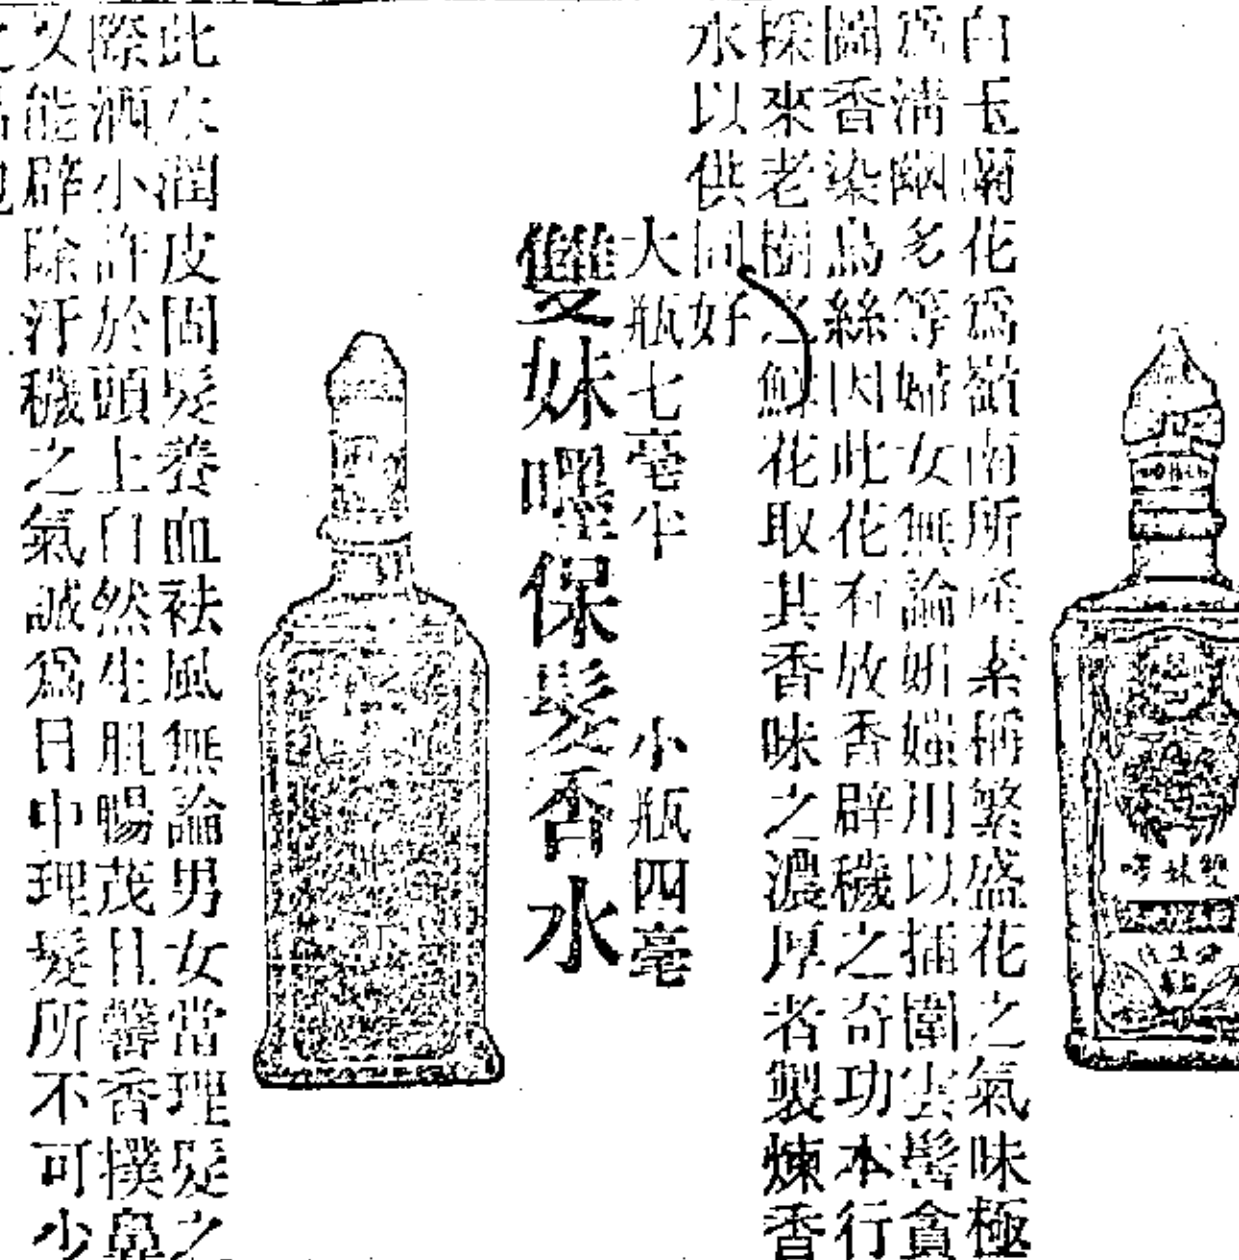 白玉蘭花爲嶺南所產素稱繁盛花之氣味極
爲清幽多等婦女無論妍媸用以插圍雲鬢貪
圖香染鳥絲因此花有放香辟穢之奇功本行
採來老樹之鮮花取其香味之濃厚者製煉香
水以供同好
大瓶七毫半 小瓶四毫
雙妹嚜保髮香水
此水潤皮間髮養血祛風無論男女當理髮之
際洒小許於頭上自然生肌暢茂且馨香撲鼻
又能辟除汗穢之氣誠爲日中理髮所不可少
雙妹嚜